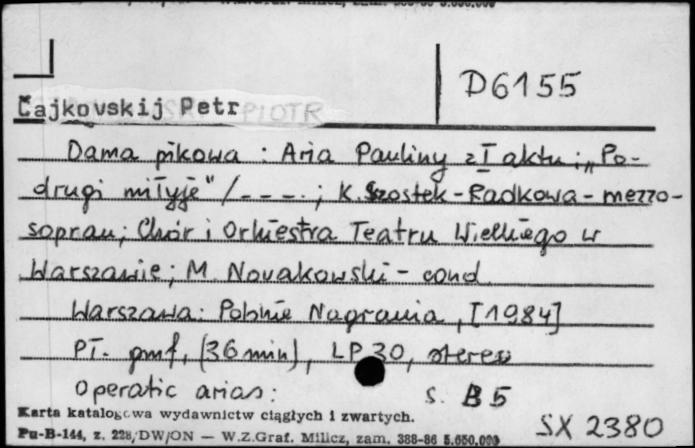 D6155
Čajkovskij Petr
PIOTR
Dama pikowa : Aria Pauliny z I aktu : „Po-
drugi miłyje" / - - - . ; K. Szostek-Radkowa - mezzo-
sopran ; Chór i Orkiestra Teatru Wielkiego w
Warszawie ; M. Novakowski - cond.
Warszawa : Polskie Nagrania , [1984]
Pł. gmf, (36 min), LP 30, stereo
Operatic arias : s. B 5
Karta katalogowa wydawnictw ciągłych i zwartych.
Pu-B-144, z. 228/DW/ON — W.Z.Graf. Milicz, zam. 388-86 5.650.000
SX 2380